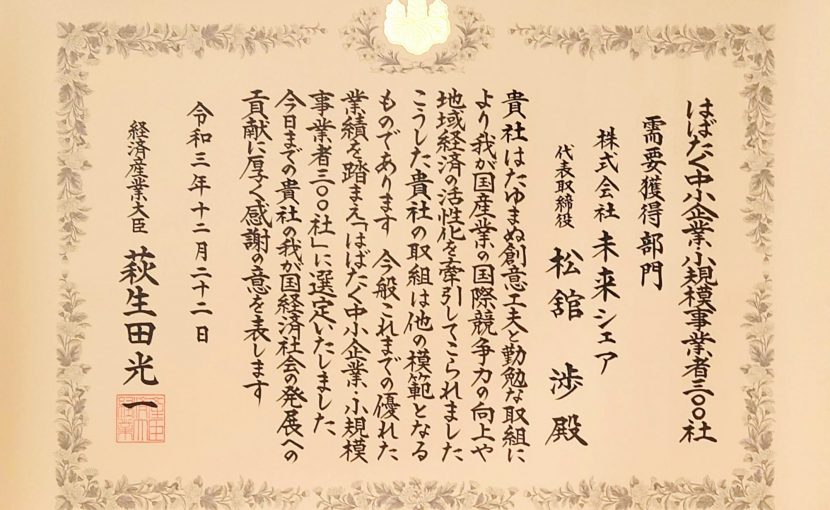 はばたく中小企業・小規模事業者三〇〇社
需要獲得部門
株式会社 未来シェア
代表取締役 松舘 渉 殿
貴社はたゆまぬ創意工夫と勤勉な取組に
より我が国産業の国際競争力の向上や
地域経済の活性化を牽引してこられました
こうした貴社の取組は他の模範となる
ものであります 今般これまでの優れた
業績を踏まえ「はばたく中小企業・小規模
事業者三〇〇社」に選定いたしました
今日までの貴社の我が国経済社会の発展への
貢献に厚く感謝の意を表します
令和三年十二月二十二日
経済産業大臣 萩生田光一